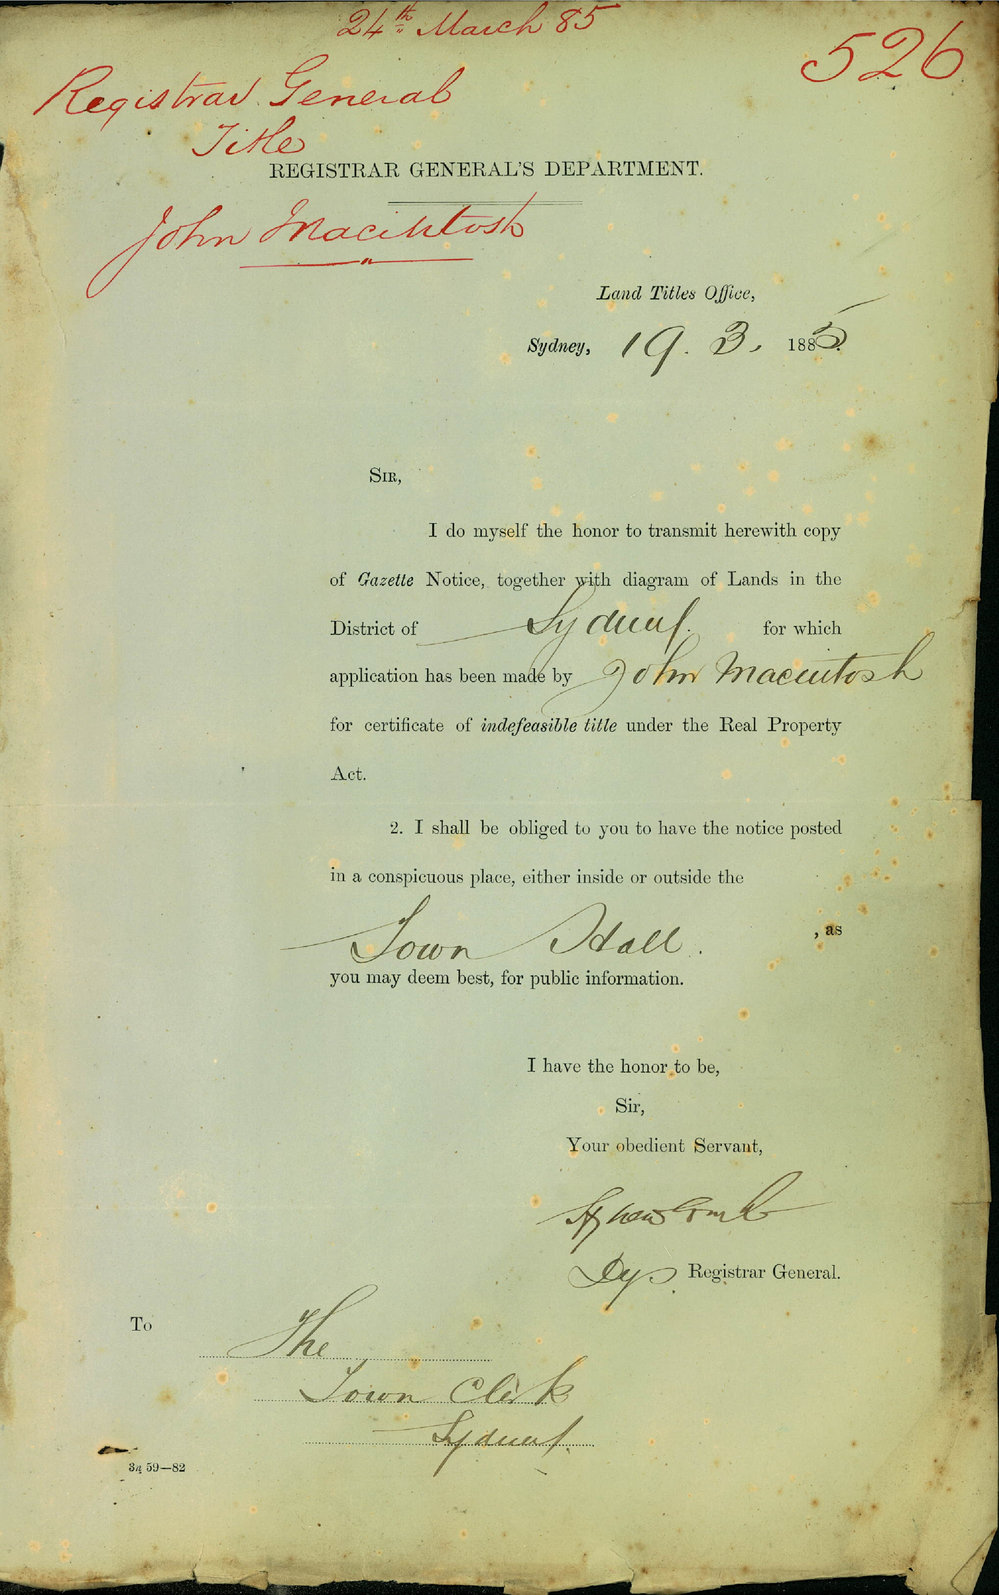 24th March 85
526
Registrar General
Title
REGISTRAR GENERAL'S DEPARTMENT.
John Macintosh
Land Titles Office,
Sydney, 19. 3. 1885.
SIR,
I do myself the honor to transmit herewith copy
of Gazette Notice, together with diagram of Lands in the
District of Sydney. for which
application has been made by John Macintosh
for certificate of indefeasible title under the Real Property
Act.
2. I shall be obliged to you to have the notice posted
in a conspicuous place, either inside or outside the
Town Hall. , as
you may deem best, for public information.
I have the honor to be,
Sir,
Your obedient Servant,
Dep Registrar General.
To
The
Town Clerk
Sydney.
59—82